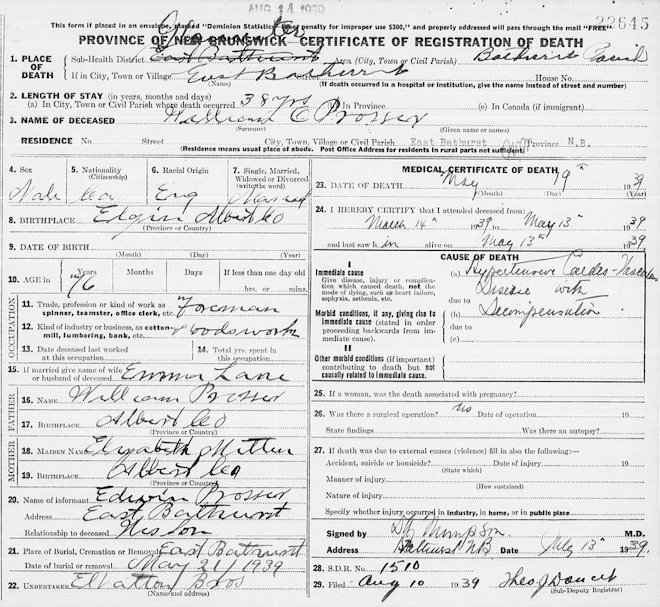 AUG 14 1939
22645
This form if placed in an envelope, marked "Dominion Statistics" penalty for improper use $300," and properly addressed will pass through the mail "FREE"
PROVINCE OF NEW BRUNSWICK CERTIFICATE OF REGISTRATION OF DEATH
1. PLACE OF DEATH
Sub-Health District East Bathurst Area (City, Town or Civil Parish) Bathurst Parish
If in City, Town or Village East Bathurst House No.
(If death occurred in a hospital or institution, give the name instead of street and number)
2. LENGTH OF STAY (in years, months and days)
(a) In City, Town or Civil Parish where death occurred 38 yrs (b) In Province (c) In Canada (if immigrant)
3. NAME OF DECEASED William C Prosser
(Surname) (Given name or names)
RESIDENCE No. Street City, Town, Village or Civil Parish East Bathurst Province N.B.
(Residence means usual place of abode. Post Office Address for residents in rural parts not sufficient)
4. Sex Male
5. Nationality (Citizenship)
6. Racial Origin Eng
7. Single, Married, Widowed or Divorced (write the word) Married
8. BIRTHPLACE Elgin Albert Co
(Province or Country)
9. DATE OF BIRTH
(Month) (Day) (Year)
10. AGE in Years Months Days If less than one day
76 hrs. or mins.
OCCUPATION
11. Trade, profession or kind of work as spinner, teamster, office clerk, etc. Foreman
12. Kind of industry or business, as cotton-mill, lumbering, bank, etc. Woodswork
13. Date deceased last worked at this occupation
14. Total yrs. spent in this occupation
15. If married give name of wife or husband of deceased Emma Lane
FATHER
16. NAME William Prosser
17. BIRTHPLACE Albert Co
(Province or Country)
MOTHER
18. MAIDEN NAME Elizabeth Mitten
19. BIRTHPLACE Albert Co
(Province or Country)
20. Name of informant Edwin Prosser
Address East Bathurst
Relationship to deceased His son
21. Place of Burial, Cremation or Removal East Bathurst
Date of burial or removal May 21/1939
22. UNDERTAKER Bros
MEDICAL CERTIFICATE OF DEATH
23. DATE OF DEATH May 19th 1939
(Month) (Day) (Year)
24. I HEREBY CERTIFY that I attended deceased from:
March 14th 1939 to May 13th 1939
and last saw h im alive on May 13th 1939
CAUSE OF DEATH
I
Immediate cause
Give disease, injury or complication which caused death, not the mode of dying, such as heart failure, asphyxia, asthenia, etc.
(a) Hypertensive Cardio-Vascular
Disease with
due to
Morbid conditions, if any, giving rise to immediate cause (stated in order proceeding backwards from immediate cause).
(b) Decompensation
due to
(c)
II
Other morbid conditions (if important) contributing to death but not causally related to immediate cause.
25. If a woman, was the death associated with pregnancy?
26. Was there a surgical operation? no Date of operation 19
State findings Was there an autopsy?
27. If death was due to external causes (violence) fill in also the following:—
Accident, suicide or homicide? Date of injury 19
(State which)
Manner of injury
(How sustained)
Nature of injury
Specify whether injury occurred in industry, in home, or in public place
Signed by M.D.
Address Bathurst N.B. Date 13th 1939.
28. S.D.R. No. 1510
29. Filed Aug 10 1939 Theo J Doucet
(Sub-Deputy Registrar)